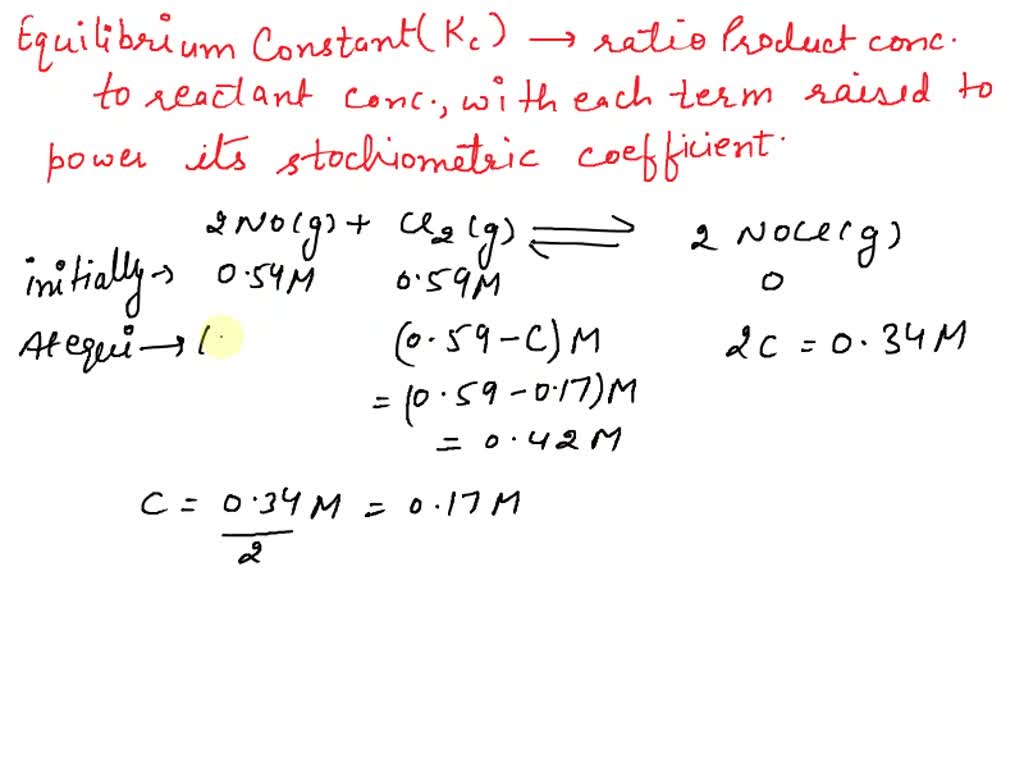 Equilibrium Constant (Kc) → ratio Product conc.
to reactant conc., with each term raised to
power its stochiometric coefficient.
2 NO(g) + Cl2(g) ⇌ 2 NOCl(g)
initially → 0.54M 0.59M 0
At equi → (. (0.59 - C) M 2C = 0.34 M
= (0.59 - 0.17) M
= 0.42 M
C = 0.34 M / 2 = 0.17 M